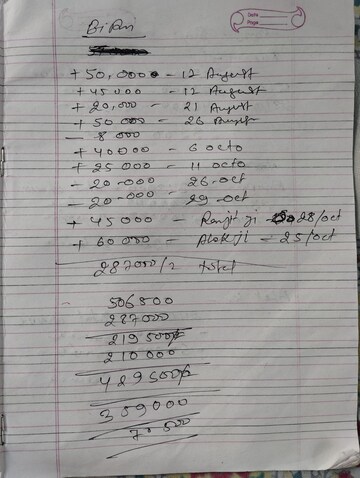 Date
Page
+ 50,000 - 12 August
+ 45000 - 12 August
+ 20,000 - 21 August
+ 50000 - 26 August
- 8000
+ 40000 - 6 octo
+ 25000 - 11 octo
- 20-000 26-oct
- 20-000 - 29-oct
+ 45000 - Ranjit ji - 28/oct
+ 60000 - Alok ji - 25/oct
287000/2 total
506500
287000
219500
210000
429500
359000
70500